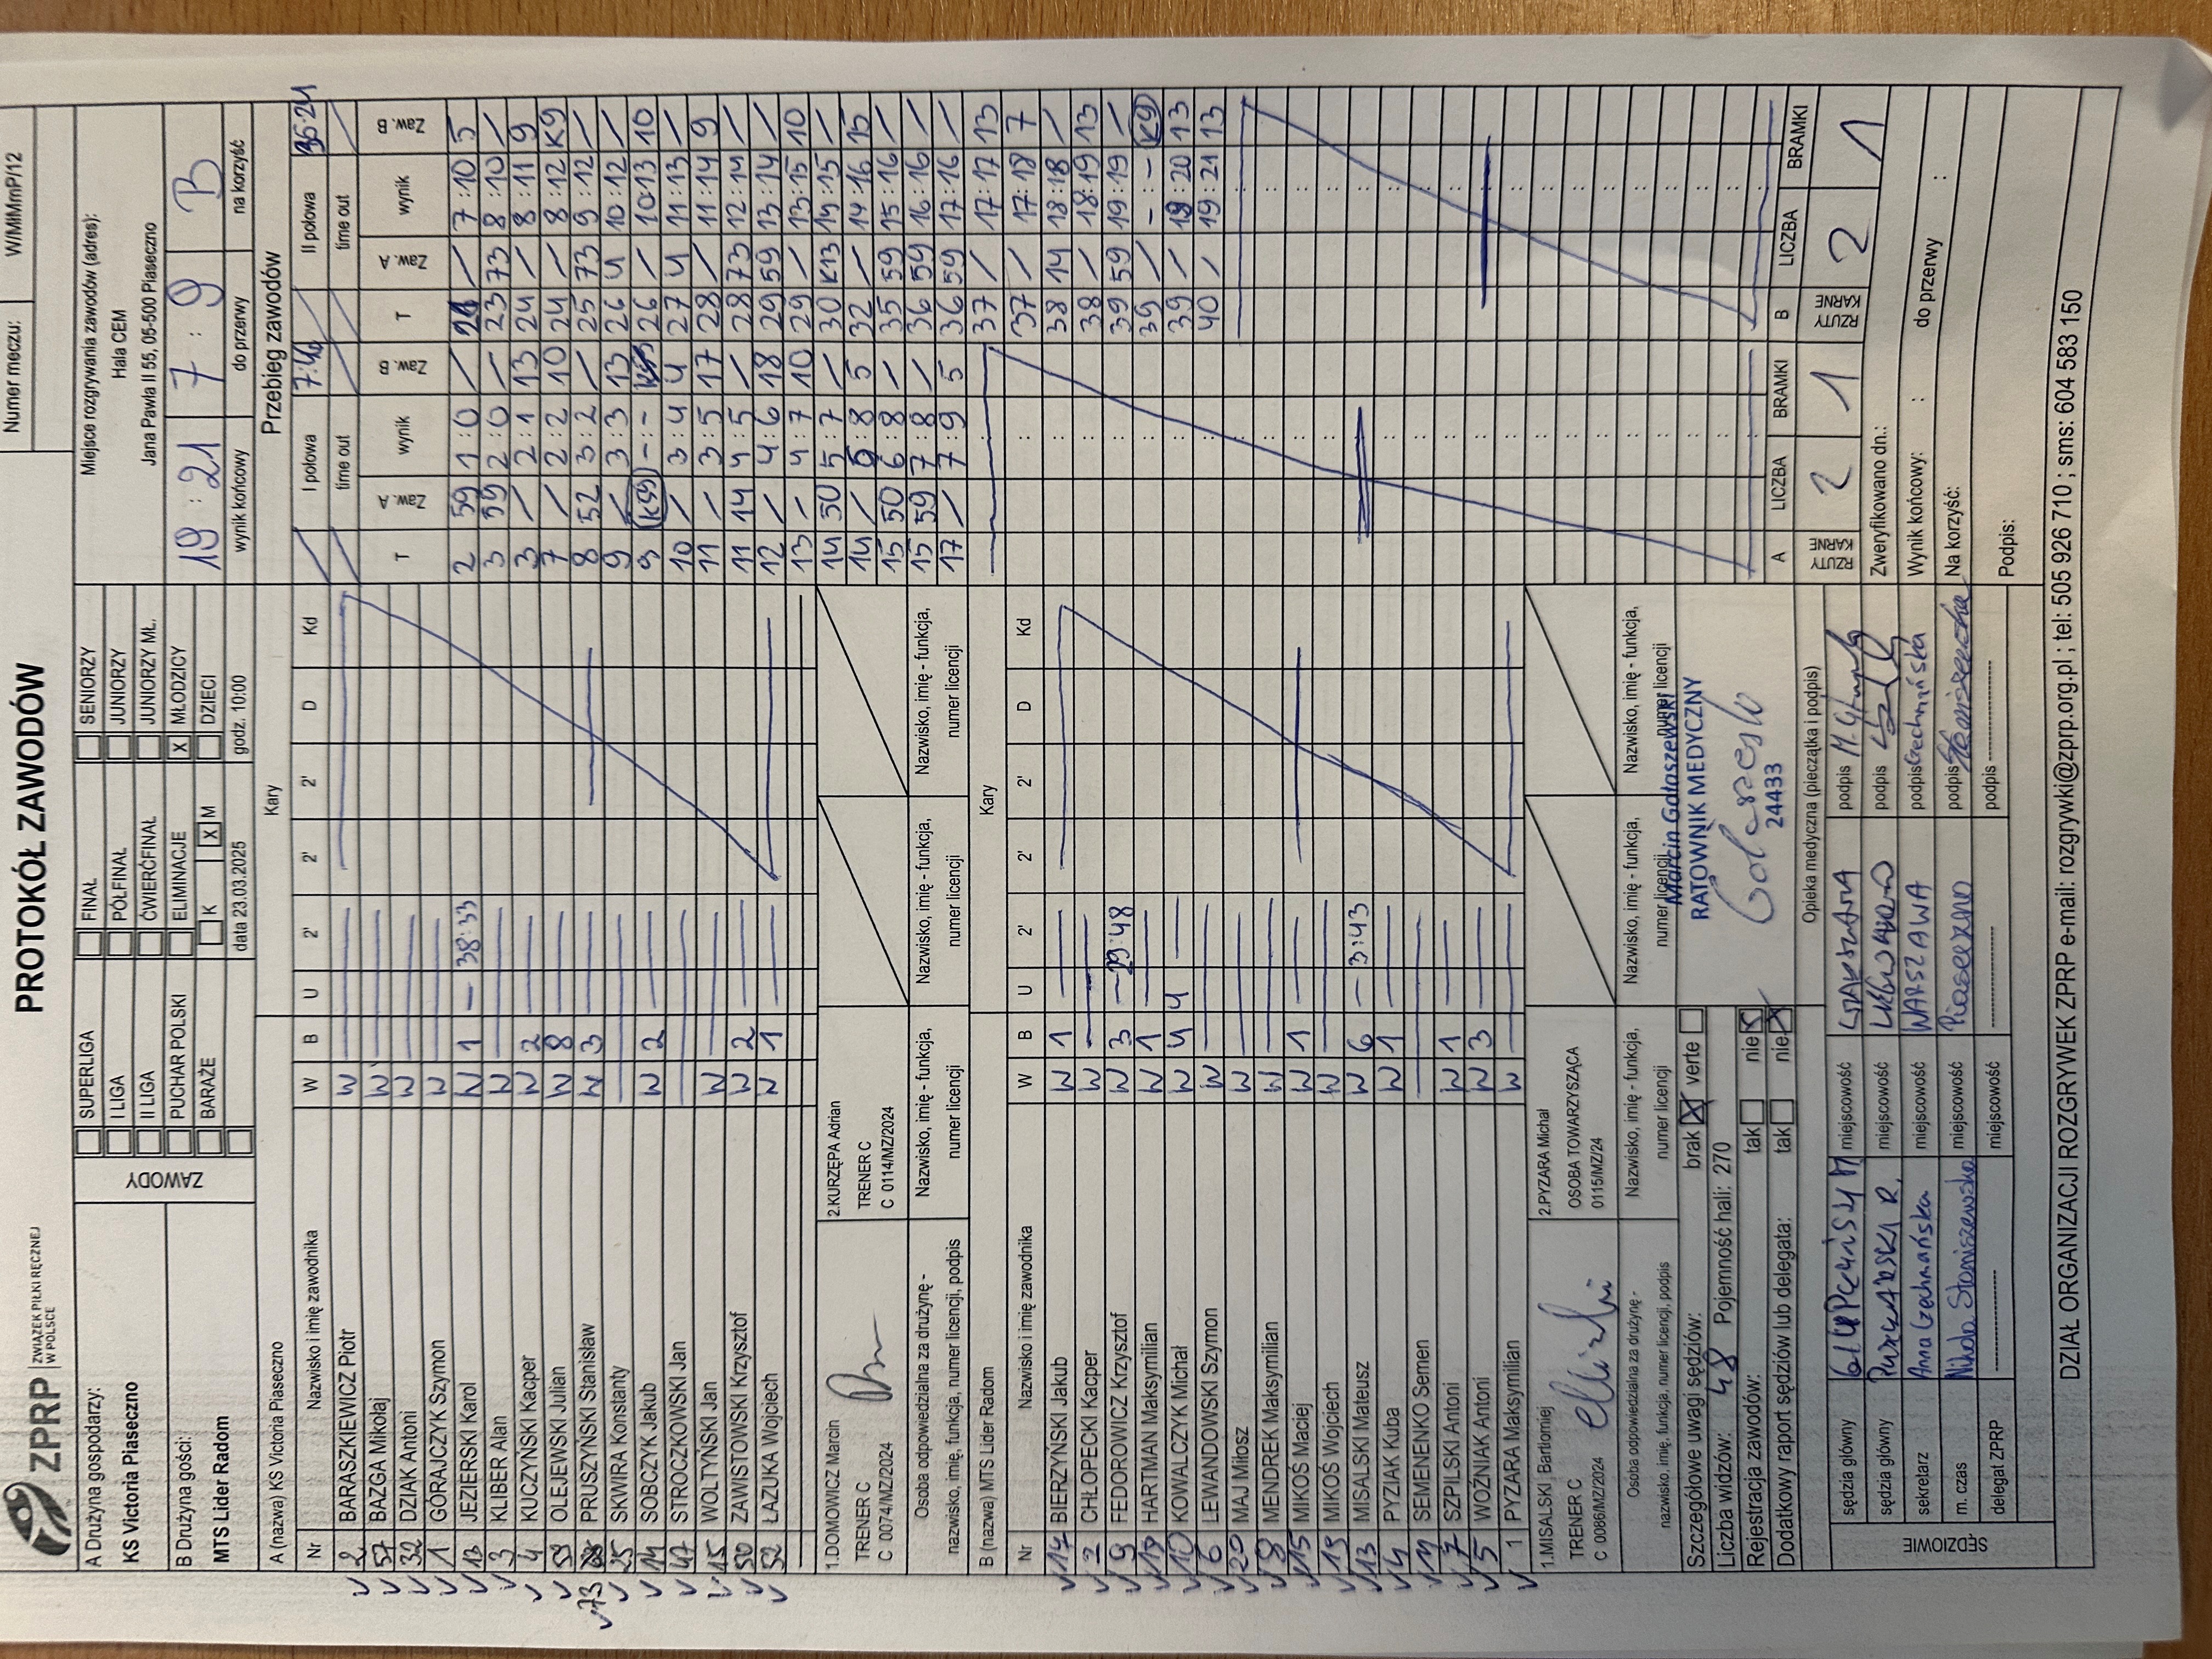 PROTOKÓŁ ZAWODÓW
ZPRP ZWIĄZEK PIŁKI RĘCZNEJ W POLSCE
Numer meczu: W/MłMmP/12
A Drużyna gospodarzy:
KS Victoria Piaseczno
B Drużyna gości:
MTS Lider Radom
ZAWODY
SUPERLIGA FINAŁ SENIORZY
I LIGA PÓŁFINAŁ JUNIORZY
II LIGA ĆWIERĆFINAŁ JUNIORZY MŁ.
PUCHAR POLSKI ELIMINACJE X MŁODZICY
BARAŻE K X M DZIECI
data 23.03.2025 godz. 10:00
Miejsce rozgrywania zawodów (adres):
Hala CEM
Jana Pawła II 55, 05-500 Piaseczno
19 : 21 7 : 9 B
wynik końcowy do przerwy na korzyść
A (nazwa) KS Victoria Piaseczno Kary
Nr Nazwisko i imię zawodnika W B U 2' 2' 2' D Kd
2 BARASZKIEWICZ Piotr W
57 BAZGA Mikołaj W
32 DZIAK Antoni W
1 GÓRAJCZYK Szymon W
13 JEZIERSKI Karol W 1 38:33
3 KLIBER Alan W
4 KUCZYŃSKI Kacper W 2
59 OLEJEWSKI Julian W 8
73 PRUSZYŃSKI Stanisław W 3
25 SKWIRA Konstanty
14 SOBCZYK Jakub W 2
47 STROCZKOWSKI Jan
15 WOLTYŃSKI Jan W
50 ZAWISTOWSKI Krzysztof W 2
52 ŁAZUKA Wojciech W 1
1.DOMOWICZ Marcin
TRENER C
C 0074/MZ/2024
2.KURZĘPA Adrian
TRENER C
C 0114/MZ/2024
Osoba odpowiedzialna za drużynę -
nazwisko, imię, funkcja, numer licencji, podpis
Nazwisko, imię - funkcja, numer licencji
Nazwisko, imię - funkcja, numer licencji
Nazwisko, imię - funkcja, numer licencji
B (nazwa) MTS Lider Radom Kary
Nr Nazwisko i imię zawodnika W B U 2' 2' 2' D Kd
14 BIERZYŃSKI Jakub W 1
2 CHŁOPECKI Kacper W
9 FEDOROWICZ Krzysztof W 3 29:48
19 HARTMAN Maksymilian W 1
10 KOWALCZYK Michał W 4 4
6 LEWANDOWSKI Szymon W
20 MAJ Miłosz W
8 MENDREK Maksymilian W
15 MIKOŚ Maciej W 1
19 MIKOŚ Wojciech W
13 MISALSKI Mateusz W 6 3:43
4 PYZIAK Kuba W 1
11 SEMENENKO Semen
7 SZPILSKI Antoni W 1
5 WOŹNIAK Antoni W 3
1 PYZARA Maksymilian W
1.MISALSKI Bartłomiej
TRENER C
C 0086/MZ/2024
2.PYZARA Michał
OSOBA TOWARZYSZĄCA
0115/MZ/24
Osoba odpowiedzialna za drużynę -
nazwisko, imię, funkcja, numer licencji, podpis
Nazwisko, imię - funkcja, numer licencji
Nazwisko, imię - funkcja, numer licencji
Nazwisko, imię - funkcja, numer licencji
Szczegółowe uwagi sędziów: brak X verte
Liczba widzów: 48 Pojemność hali: 270
Rejestracja zawodów: tak nie X
Dodatkowy raport sędziów lub delegata: tak nie X
Marcin Gołaszewski
RATOWNIK MEDYCZNY
24433
Opieka medyczna (pieczątka i podpis)
SĘDZIOWIE
sędzia główny miejscowość WARSZAWA podpis
sędzia główny miejscowość podpis
sekretarz Anna Czechmańska miejscowość WARSZAWA podpis Czechmańska
m. czas Nikola Staniszewska miejscowość Piaseczno podpis Staniszewska
delegat ZPRP miejscowość podpis
Przebieg zawodów
I połowa 7:46 II połowa 36:24
time out time out
T Zaw. A wynik Zaw. B T Zaw. A wynik Zaw. B
2 59 1:0 / 21 / 7:10 5
3 59 2:0 / 23 73 8:10 /
3 / 2:1 13 24 / 8:11 9
7 / 2:2 10 24 / 8:12 K9
8 52 3:2 / 25 73 9:12 /
9 / 3:3 13 26 4 10:12 /
9 K59 -:- 26 / 10:13 10
10 / 3:4 4 27 4 11:13 /
11 / 3:5 17 28 / 11:14 9
11 14 4:5 / 28 73 12:14 /
12 / 4:6 18 29 59 13:14 /
13 / 4:7 10 29 / 13:15 10
14 50 5:7 / 30 K13 14:15 /
14 / 5:8 5 32 / 14:16 15
15 50 6:8 / 35 59 15:16 /
15 59 7:8 / 36 59 16:16 /
17 / 7:9 5 36 59 17:16 /
37 / 17:17 13
37 / 17:18 7
38 14 18:18 /
38 / 18:19 13
39 59 19:19 /
39 / -:- K9
39 / 19:20 13
40 / 19:21 13
A LICZBA BRAMKI B LICZBA BRAMKI
RZUTY KARNE 2 1 RZUTY KARNE 2 1
Zweryfikowano dn.:
Wynik końcowy: : do przerwy :
Na korzyść:
Podpis:
DZIAŁ ORGANIZACJI ROZGRYWEK ZPRP e-mail: rozgrywki@zprp.org.pl ; tel: 505 926 710 ; sms: 604 583 150